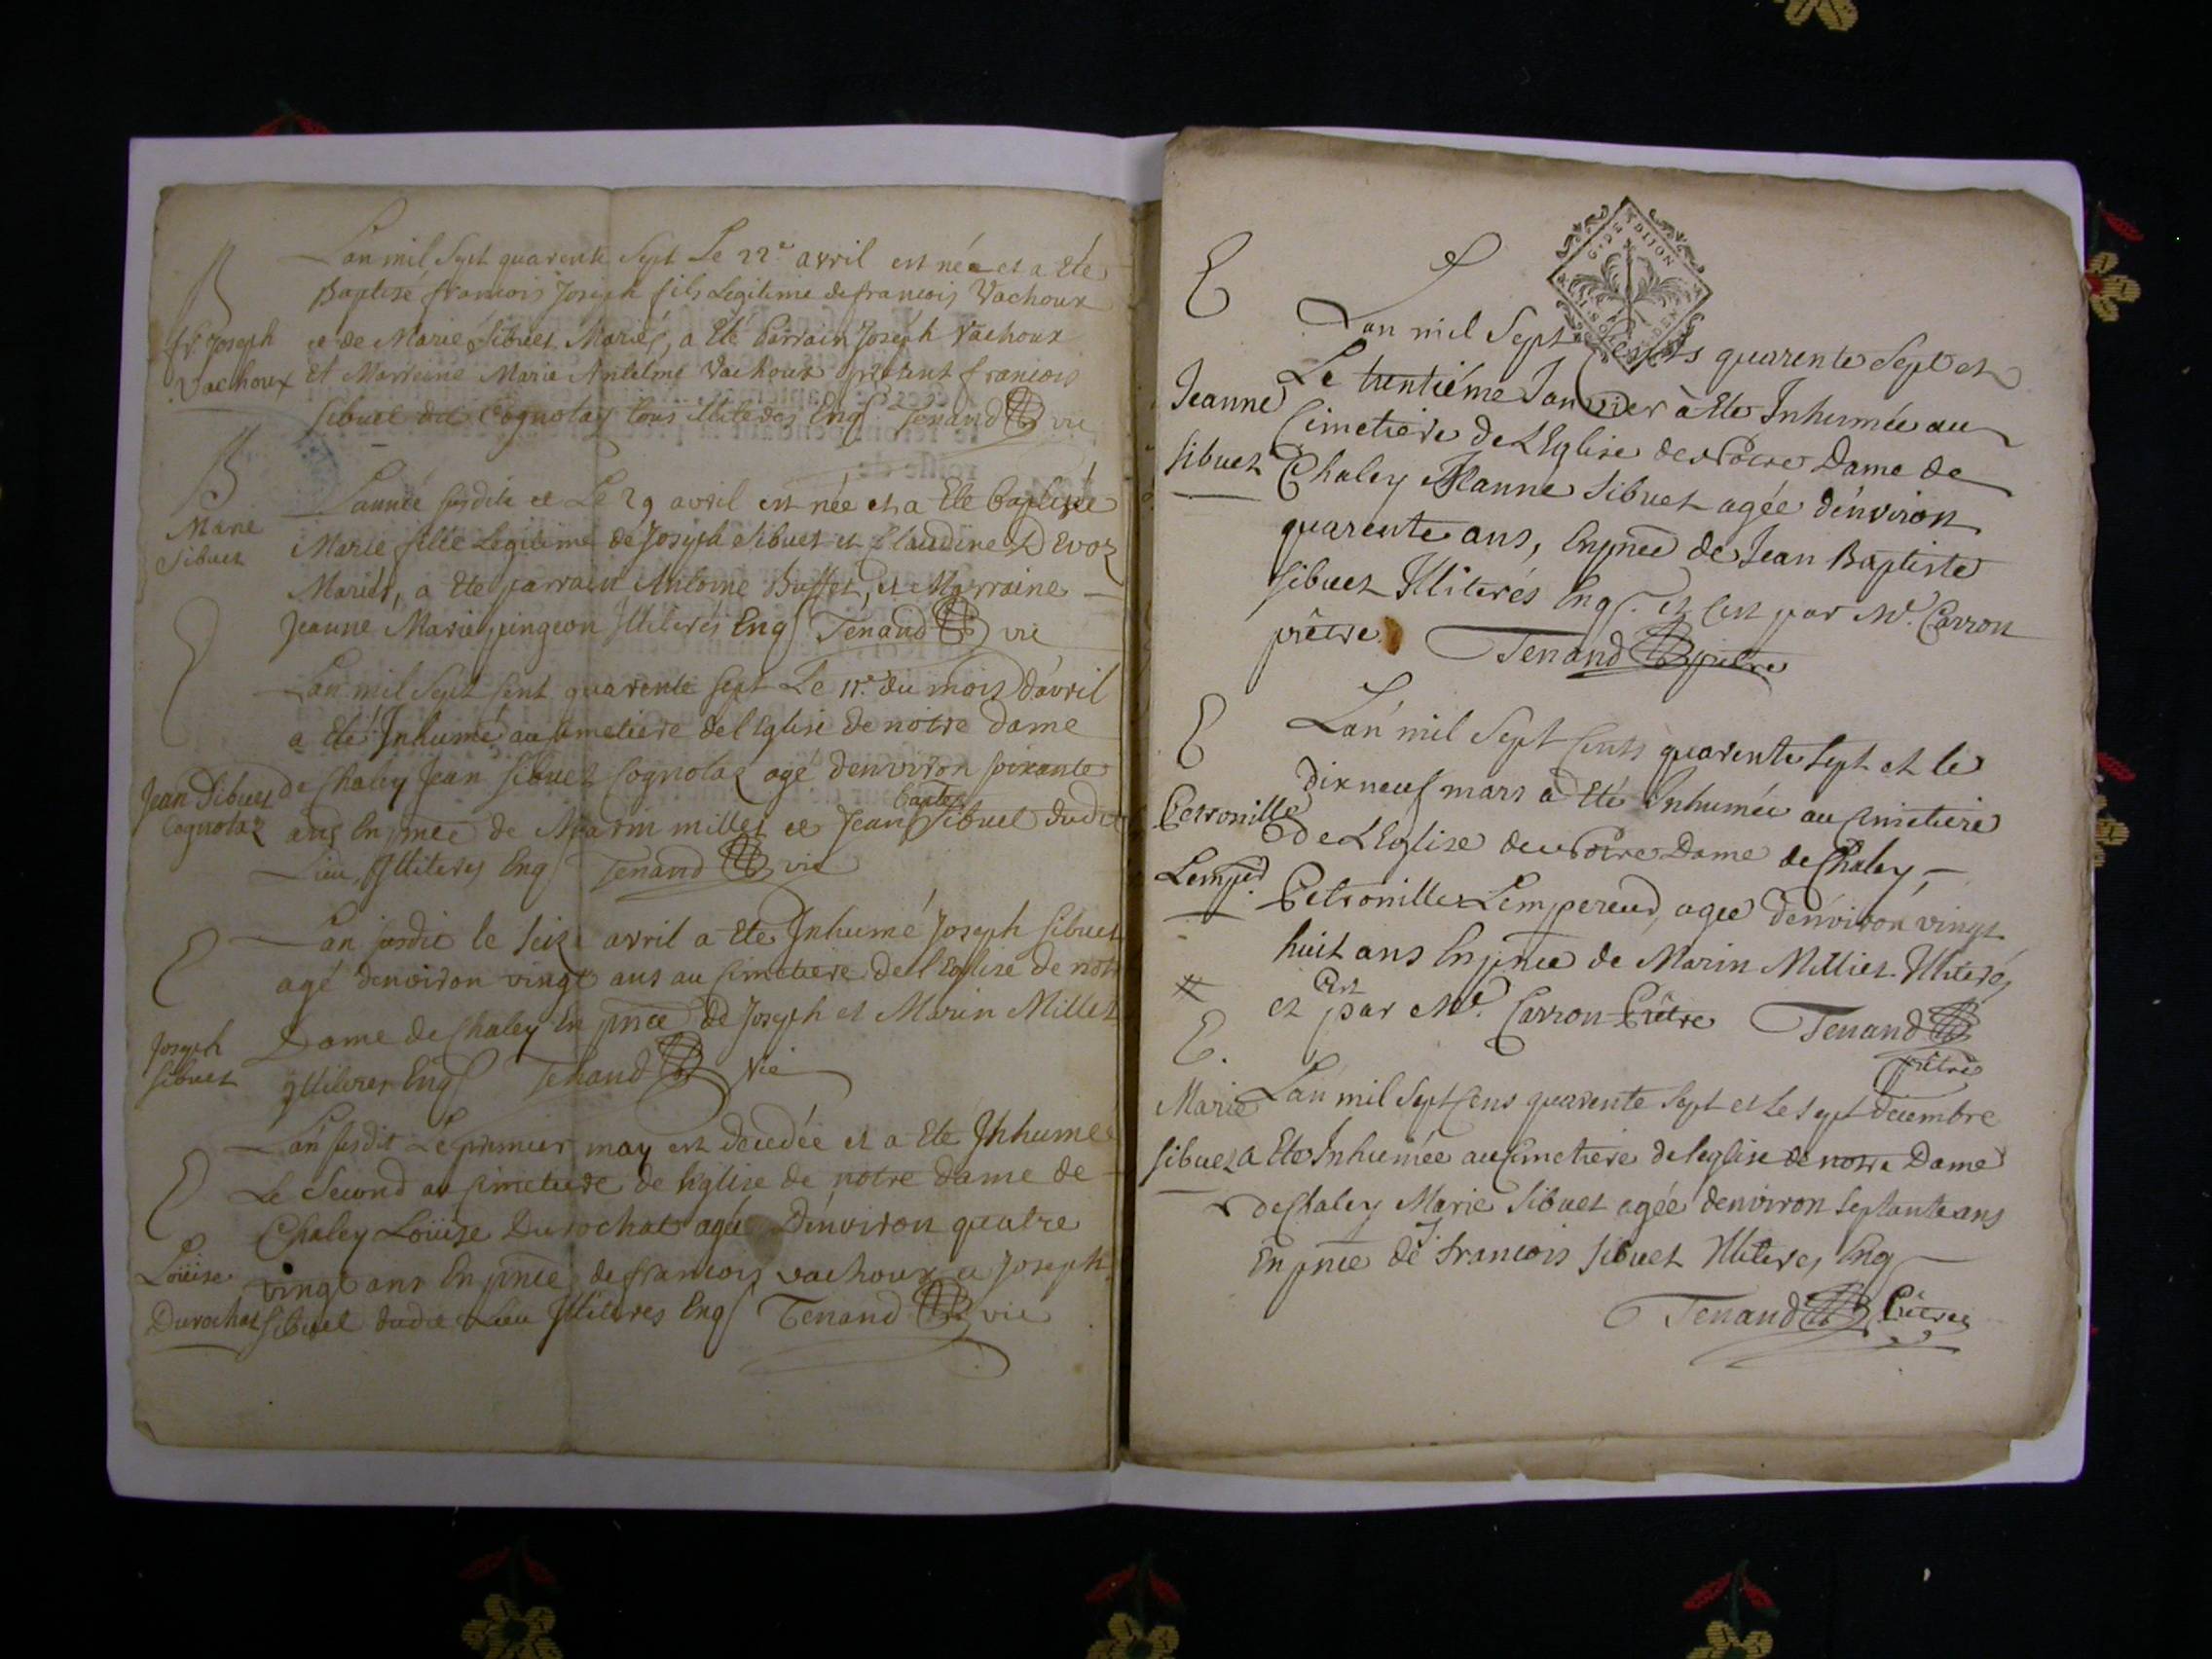 B
fr. Joseph
Vachoux
L'an mil Sept quarente Sept Le 22e avril est née et a Eté
Baptisé francois Joseph fils Legitime de francois Vachoux
et de Marie Sibuet Mariés, a Eté Parrain Joseph Vachoux
et Marreine Marie Antelme Vachoux présent francois
Sibuet dit Cognolaz tous illiteres Enq Tenand vic
B
Marie
Sibuet
L'année susdite et Le 29 avril est née et a Eté baptisée
Marie fille Legitime de Joseph Sibuet et Claudine
Mariés, a Eté parrain Antoine Buffet, et Marraine
Jeanne Marie pingeon Illiterés Enq Tenand vic
E
Jean Sibuet
Cognolaz
L'an mil Sept Cent quarente sept Le 11e du mois d'avril
a Eté Inhumé au Cimetiere de l'Eglise de notre Dame
de Chaley Jean Sibuet Cognolaz agé denviron soixante
ans En pnce de Marin millet et Jean bapte Sibuet dudit
Lieu, Illiteres Enq Tenand vic
E
Joseph
Sibuet
L'an susdit le Seize avril a Eté Inhumé Joseph Sibuet
agé denviron vingt ans au Cimetiere de l'Eglise de notre
Dame de Chaley En pnce de Joseph et Marin Millet
Illiteres Enq Tenand Vic
E
Loüise
Durochat
L'an susdit Le premier may est decedée et a Eté Inhumée
Le Second au Cimetiere de l'Eglise de notre Dame de
Chaley Loüise Durochat agée D'environ quatre
vingt ans En pnce de francois vachoux et Joseph
Sibuet dudit Lieu Illiteres Enq Tenand vic
G. DE DIJON
E
Jeanne
Sibuet
L'an mil Sept Cents quarente Sept et
Le trentiéme Janvier à Eté Inhumée au
Cimetiere de L'Eglise de Notre Dame de
Chaley Jeanne Sibuet agée d'environ
quarente ans, En pnce de Jean Baptiste
Sibuet Illiterés Enq. et Cert par Mr. Carron
prêtre. Tenand prêtre
E
Petronille
Lemper
L'an mil Sept Cents quarente Sept et le
dix neuf mars a Eté Inhumée au Cimetiere
de L'Eglise de Notre Dame de Chaley,
Petronille Lempereur, agée d'environ vingt
huit ans En pnce de Marin Milliet Illiterés
et Cert par Mr. Carron Prêtre Tenand
prêtre
E.
Marie
Sibuet
L'an mil Sept Cens quarente Sept et le sept decembre
a Eté Inhumée au Cimetiere de l'eglise de notre Dame
de Chaley Marie Sibuet agée denviron septante ans
En pnce de francois Sibuet Illiteres Enq
Tenand Prêtre